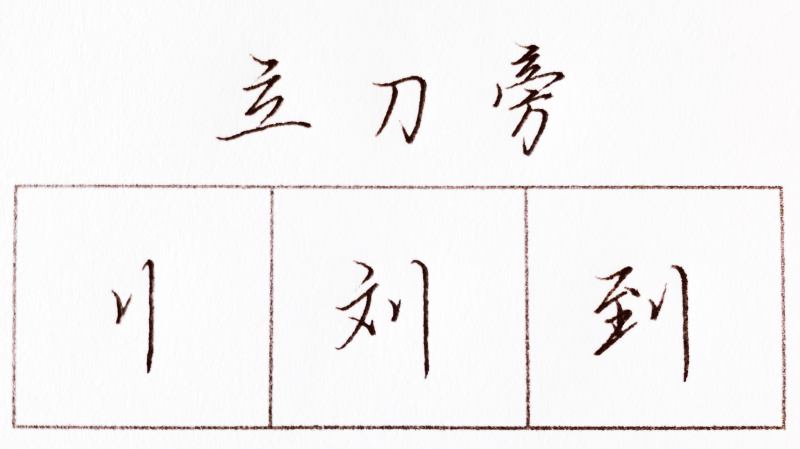 立刀旁
刂 刘 到